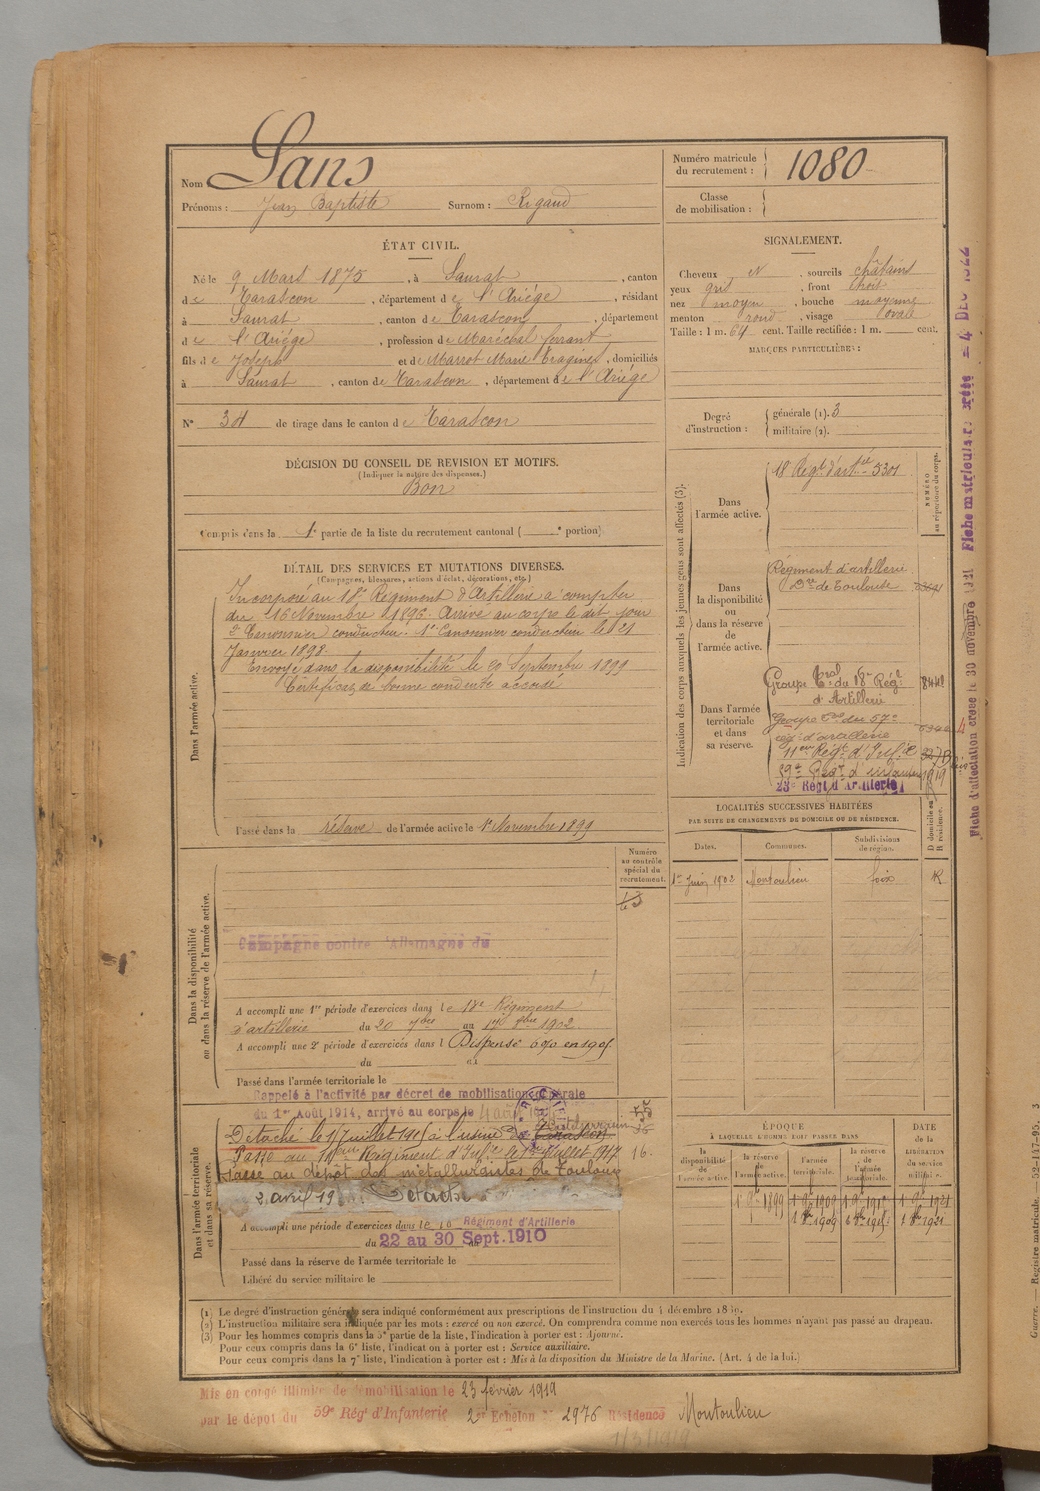 Nom Sans
Prénoms : Jean Baptiste Surnom : Rigaud
Numéro matricule du recrutement : 1080
Classe de mobilisation :
ÉTAT CIVIL.
Né le 9 Mars 1875, à Saurat, canton
de Tarascon, département de l'Ariége, résidant
à Saurat, canton de Tarascon, département
de l'Ariége, profession de Maréchal ferrant
fils de Joseph et de Marrot Marie, domiciliés
à Saurat, canton de Tarascon, département de l'Ariége
N° 34 de tirage dans le canton de Tarascon
SIGNALEMENT.
Cheveux N, sourcils châtains
yeux gris, front étroit
nez moyen, bouche moyenne
menton rond, visage ovale
Taille : 1 m. 64 cent. Taille rectifiée : 1 m. cent.
MARQUES PARTICULIÈRES :
Degré d'instruction : générale (1). 3
militaire (2).
DÉCISION DU CONSEIL DE REVISION ET MOTIFS.
(Indiquer la nature des dispenses.)
Bon
Compris dans la 1e partie de la liste du recrutement cantonal ( e portion)
DÉTAIL DES SERVICES ET MUTATIONS DIVERSES.
(Campagnes, blessures, actions d'éclat, décorations, etc.)
Dans l'armée active.
Incorporé au 18e Régiment d'Artillerie à compter
du 16 Novembre 1896. Arrivé au corps le dit jour
2e Canonnier conducteur. 1er Canonnier conducteur le 21
Janvier 1898
Envoyé dans la disponibilité le 20 Septembre 1899
Certificat de bonne conduite accordé
Passé dans la réserve de l'armée active le 1er Novembre 1899
Indication des corps auxquels les jeunes gens sont affectés (3).
NUMÉRO au répertoire du corps.
Dans l'armée active.
18e Régt d'artie 5301
Dans la disponibilité ou dans la réserve de l'armée active.
Régiment d'artillerie
de Toulouse
Dans l'armée territoriale et dans sa réserve.
Groupe tral du 18e Régt
d'Artillerie
Groupe du 57e
rég. d'artillerie
11eme Régt d'Infie
59e Régt d'infanterie
23e Régt d'Artillerie
Fiche matriculaire
Fiche d'affectation créée le 30 novembre
LOCALITÉS SUCCESSIVES HABITÉES
PAR SUITE DE CHANGEMENTS DE DOMICILE OU DE RÉSIDENCE.
Dates. Communes. Subdivisions de région. D domicile ou R résidence.
1er Juin 1902 Montoulieu foix R
Dans la disponibilité ou dans la réserve de l'armée active.
Numéro au contrôle spécial du recrutement.
Campagne contre l'Allemagne du
A accompli une 1re période d'exercices dans le 18e Régiment
d'artillerie du 20 7bre au 17 8bre 1902
A accompli une 2e période d'exercices dans l Dispensé en 1905
du au
Passé dans l'armée territoriale le
Dans l'armée territoriale et dans sa réserve.
Rappelé à l'activité par décret de mobilisation générale
du 1er Août 1914, arrivé au corps le 4 août
Détaché le 1 Juillet 1915 à l'usine de Tarascon
Passé au Régiment d'Infie le 1er Juillet 1917 16.
Passé au dépôt des métallurgistes de Toulouse
2 avril 19 Détaché
A accompli une période d'exercices dans le 18 Régiment d'Artillerie
du 22 au 30 Sept. 1910
Passé dans la réserve de l'armée territoriale le
Libéré du service militaire le
ÉPOQUE
À LAQUELLE L'HOMME DOIT PASSER DANS
DATE de la LIBÉRATION du service militaire.
la disponibilité de l'armée active la réserve de l'armée active. l'armée territoriale. la réserve de l'armée territoriale.
(1) Le degré d'instruction générale sera indiqué conformément aux prescriptions de l'instruction du 4 décembre 1889.
(2) L'instruction militaire sera indiquée par les mots : exercé ou non exercé. On comprendra comme non exercés tous les hommes n'ayant pas passé au drapeau.
(3) Pour les hommes compris dans la 5e partie de la liste, l'indication à porter est : Ajourné.
Pour ceux compris dans la 6e liste, l'indication à porter est : Service auxiliaire.
Pour ceux compris dans la 7e liste, l'indication à porter est : Mis à la disposition du Ministre de la Marine. (Art. 4 de la loi.)
Mis en congé illimité de démobilisation le 23 février 1919
par le dépôt du 59e Rég' d'Infanterie 2e Echelon N° 2976 Résidence Montoulieu
Guerre. — Registre matricule. — 52-147-95. 3